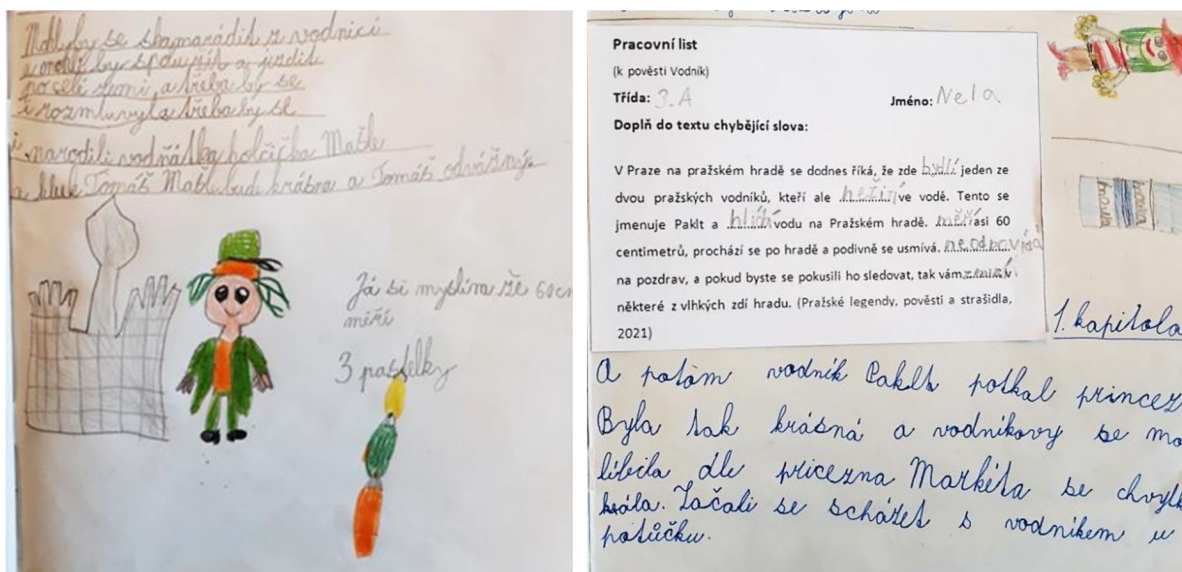 Mohl by se skamarádit z vodnicí
a mohli by spolu žít a jezdit
po celé zemi a třeba by se
i rozmluvyla třeba by se
i narodili vodňátka holčička Mašle
a kluk Tomáš Mašle bude krásna a Tomáš odvážný
Já si myslím že 60cm
měří
3 pastelky
Pracovní list
(k pověsti Vodník)
Třída: 3.A Jméno: Nela
Doplň do textu chybějící slova:
V Praze na pražském hradě se dodnes říká, že zde bydlí jeden ze
dvou pražských vodníků, kteří ale nežijí ve vodě. Tento se
jmenuje Paklt a hlídá vodu na Pražském hradě. měří asi 60
centimetrů, prochází se po hradě a podivně se usmívá. neodpovídá
na pozdrav, a pokud byste se pokusili ho sledovat, tak vám zmizí v
některé z vlhkých zdí hradu. (Pražské legendy, pověsti a strašidla,
2021)
1. kapitola
A potom vodník Paklt potkal princez
Byla tak krásná a vodníkovy se mo
líbila dle pricezna Markéta se chvylk
bála. Začali se scházet s vodníkem u
potůčku.